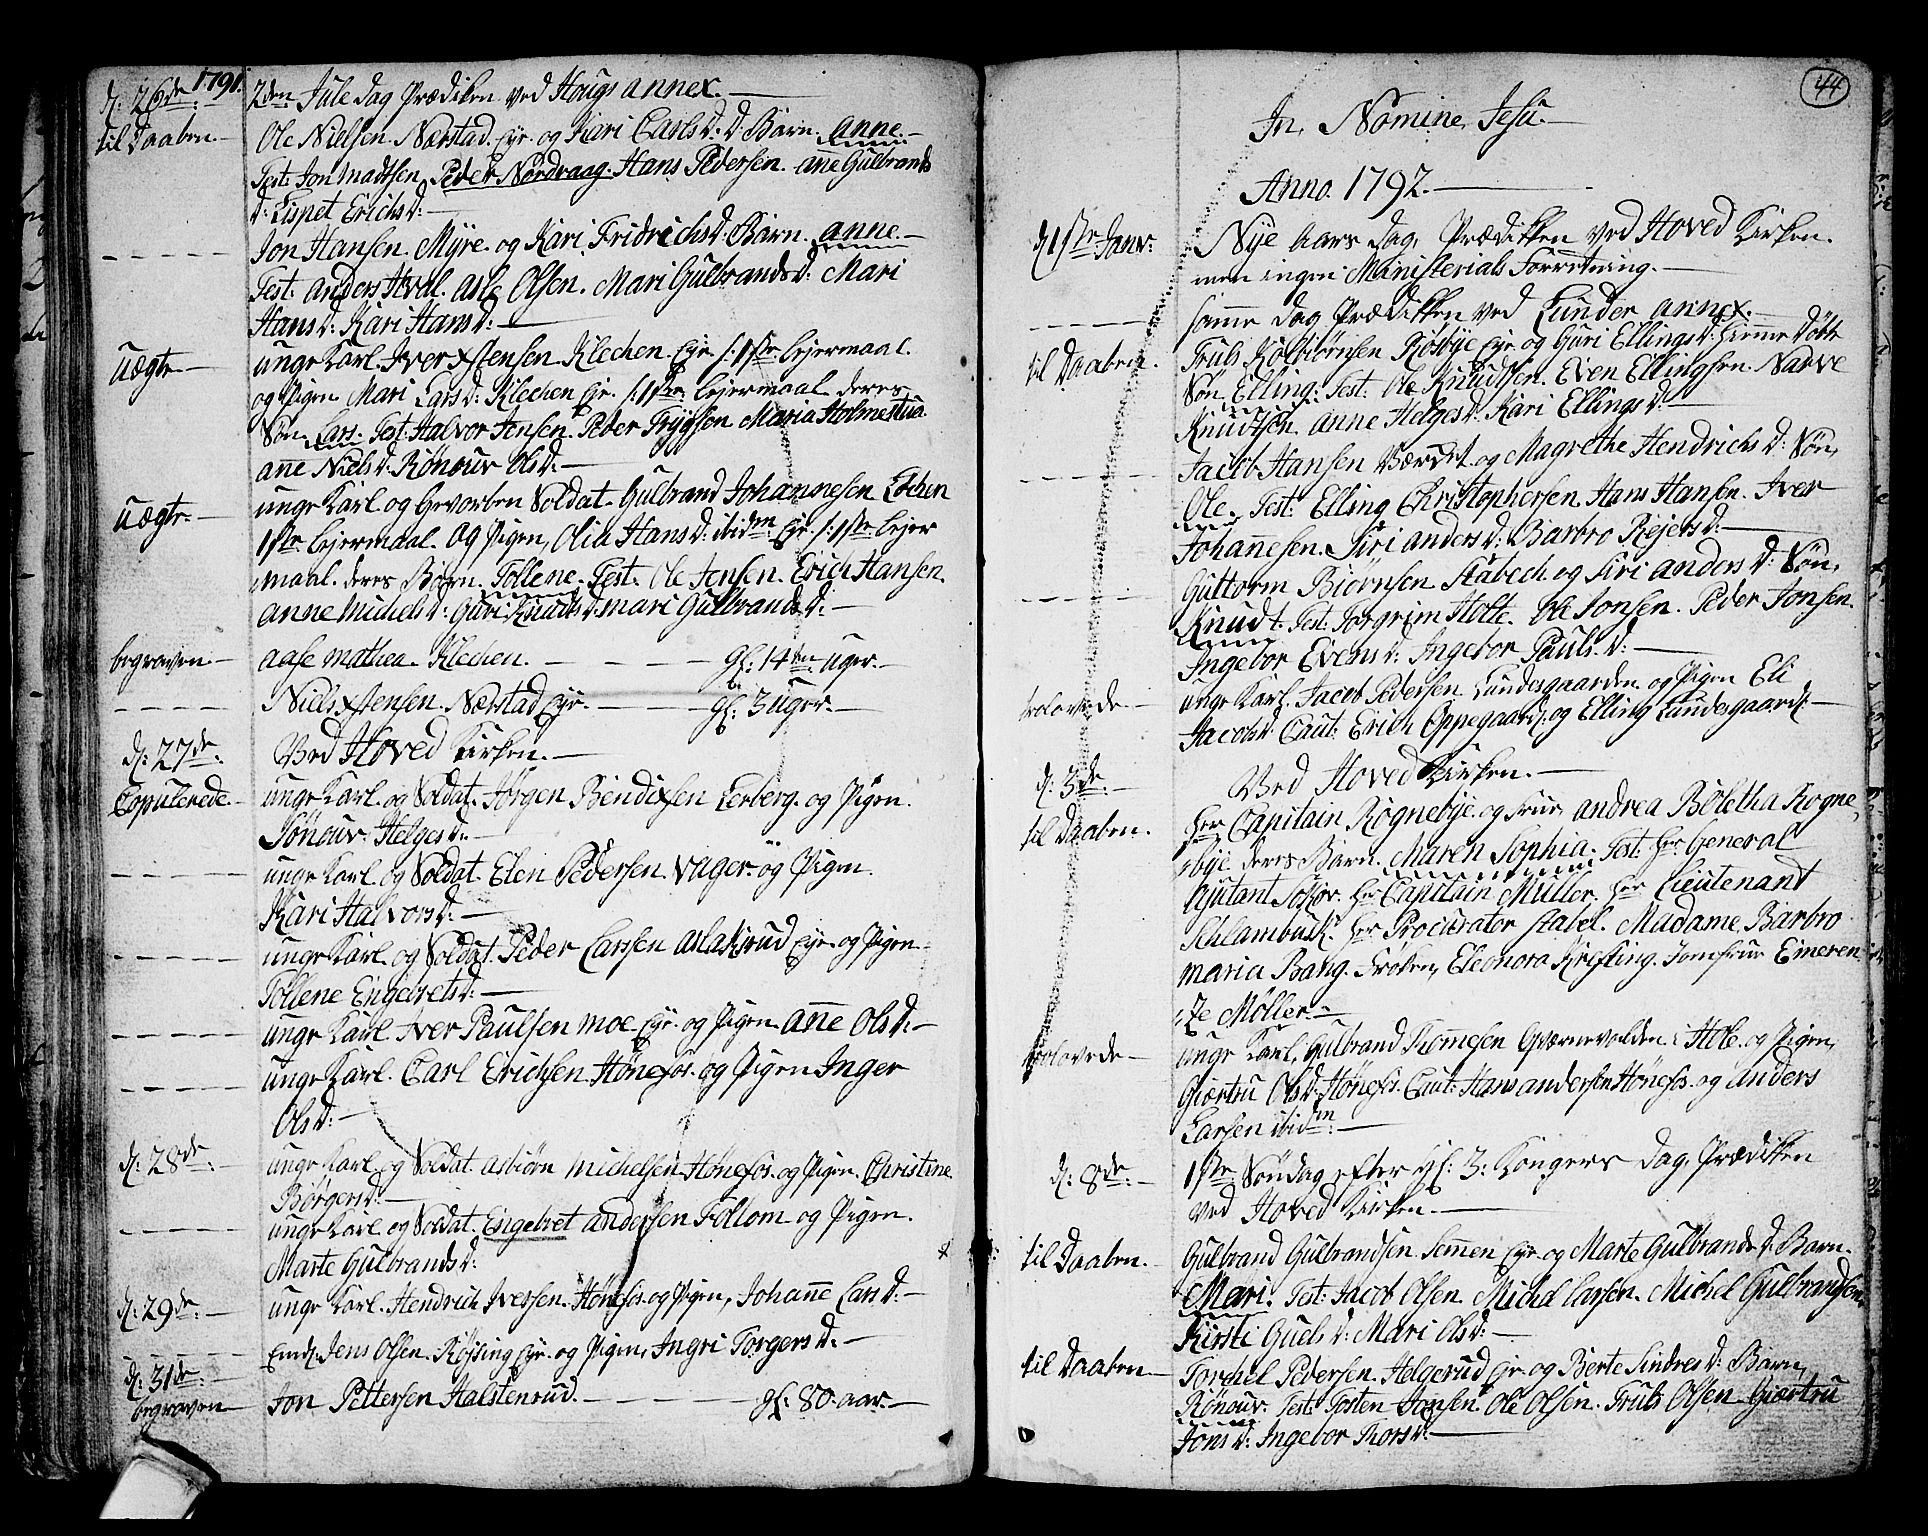 1791.
d: 26de. 2den Jule Dag Prædiken ved Hougs annex.
til Daaben. Ole Nielsen Nærstad Eje. og Kari Carlsd: D. Barn. Anne.
Test: Jon Madtsen Peder Nordraag. Hans Pedersen. Anne Gulbrands
d: Lispet Erichsd:
Jon Hansen. Myre og Kari Fridrichsd: Barn. Anne.
Test: Anders Hval. Asle Olsen. Mari Gulbrandsd: Mari
Hansd: Kari Hansd:
uægte unge Karl Iver Xstensen Klechen. Eje /:1ste Lejermaal.
og Pigen Mari Larsd: Klechen Eje. /:1ste Lejermaal. deres
Søn. Lars. Test: Halvor Jensen. Peder Trygsen Maria Holmestua.
Anne Nielsd: Rønouv Olsd:
uægte. unge Karl og Gevorben Soldat. Gulbrand Johannesen Lochen
1ste Lejermaal. Og Pigen Olia Hansd: ibidm Eje /:1ste Lejer
maal. deres Barn. Tollene. Test. Ole Jensen. Erich Hansen.
Anne Michelsd: Guri Knudsd: Mari Gulbrandsd:
begraven Aase Mathea. Klechen. gl: 14ten uger.
Niels Xstensen. Nærstad Eje. gl: 3 uger.
d: 27de. Ved Hoved Kirken.
Copulerede. unge Karl og Soldat. Jørgen Bendixsen Lerberg. og Pigen.
Sønouv Helgesd:
unge Karl og Soldat. Elen Pedersen. Vager og Pigen.
Kari Halvorsd:
unge Karl og Soldat. Peder Larssen Aslakrud Eje. og Pigen
Tollene Engebretsd:
unge Karl Iver Paulsen Moe Eje. og Pigen Anne Olsd:
unge Karl. Carl Erichsen Hønefos. og Pigen Inger
Olsd:
d: 28de. unge Karl og Soldat. Asbiørn Michelsen Hønefos. og Pigen. Christine
Børgersd:
unge Karl og Soldat. Engebret Andersen Follom og Pigen.
Marte Gulbrandsd:
d: 29de. unge Karl. Hendrich Iversen. Hønefos. og Pigen, Johanne Larsd:
Jens Olsen. Røssing Eje. og Pigen, Ingri Torgersd:
d: 31de.
begraven Jon Pettersen Halstenrud. gl: 80. aar.
44
In Nomine Jesu.
Anno. 1792.
d: 1ste Janv: Nye Aars Dag, Prædiken ved Hoved Kirken.
men ingen Ministerials Forretning.
samme Dag Prædiken ved Lunder annex.
til Daaben. Truls Kolbiørnsen Rosbye Eje og Guri Ellingsd:
Søn Elling. Test: Ole Knudtsen. Even Ellingsen. Narve
Knudtsen. Anne Helgesd: Kari Ellingsd:
Jacob Hansen Værdet og Magrethe Hendrichsd: Søn,
Ole. Test: Elling Christophersen. Hans Hansen. Iver
Johannesen. Siri Andersd: Barbro Rejersd:
Guttorm Biørnsen Stabech og Siri Andersd: Søn,
Knudt. Test: Torgrim Holte. Ole Jonsen. Peder Jonsen.
Ingebor Evensd: Ingebor Paulsd:
trolovede unge Karl. Jacob Pedersen Lundesgaarden. og Pigen Eli
Jacobsd: Caut: Erich Oppegaard, og Elling Lundesgaard.
d: 3de. Ved Hoved Kirken.
til Daaben. Her Capitain Rognebye. og Frue, Andrea Boletha Rogne,
bye deres Barn. Maren Sophia. Test: Her General
Ajutant Her Capitain Müller. Her Lieutenant
Schlambusk. Her Procurator Stabel. Madame Barbro
Maria Bang. Frøken, Eleonora Krefting. Jomfrue Emeren
tze Møller.
trolovede unge Karl, Gulbrand Tomesen Qværnevolden i Hole. og Pigen,
Giertru Olsd: Hønefos. Caut: Hans Andersen Hønefos. og Anders
Larsen ibidm.
d: 8de. 1ste Søndag efter H: 3: Kongers Dag, Prædiken
ved Hoved Kirken.
til Daaben. Gulbrand Gulbrandsen. Semmen Eje. og Marte Gulbrandsd. Barn.
Mari. Test: Jacob Olsen. Michel Larsen. Michel Gulbrandsen,
Kirsti Guelsd: Mari Olsd:
til Daaben Torchel Pedersen. Helgerud Eje og Berte Sindresd: Barn,
Rønouv. Test: Tosten Hansen. Ole Olsen. Truls Olsen Giertru
Jonsd: Ingebor Thorsd: